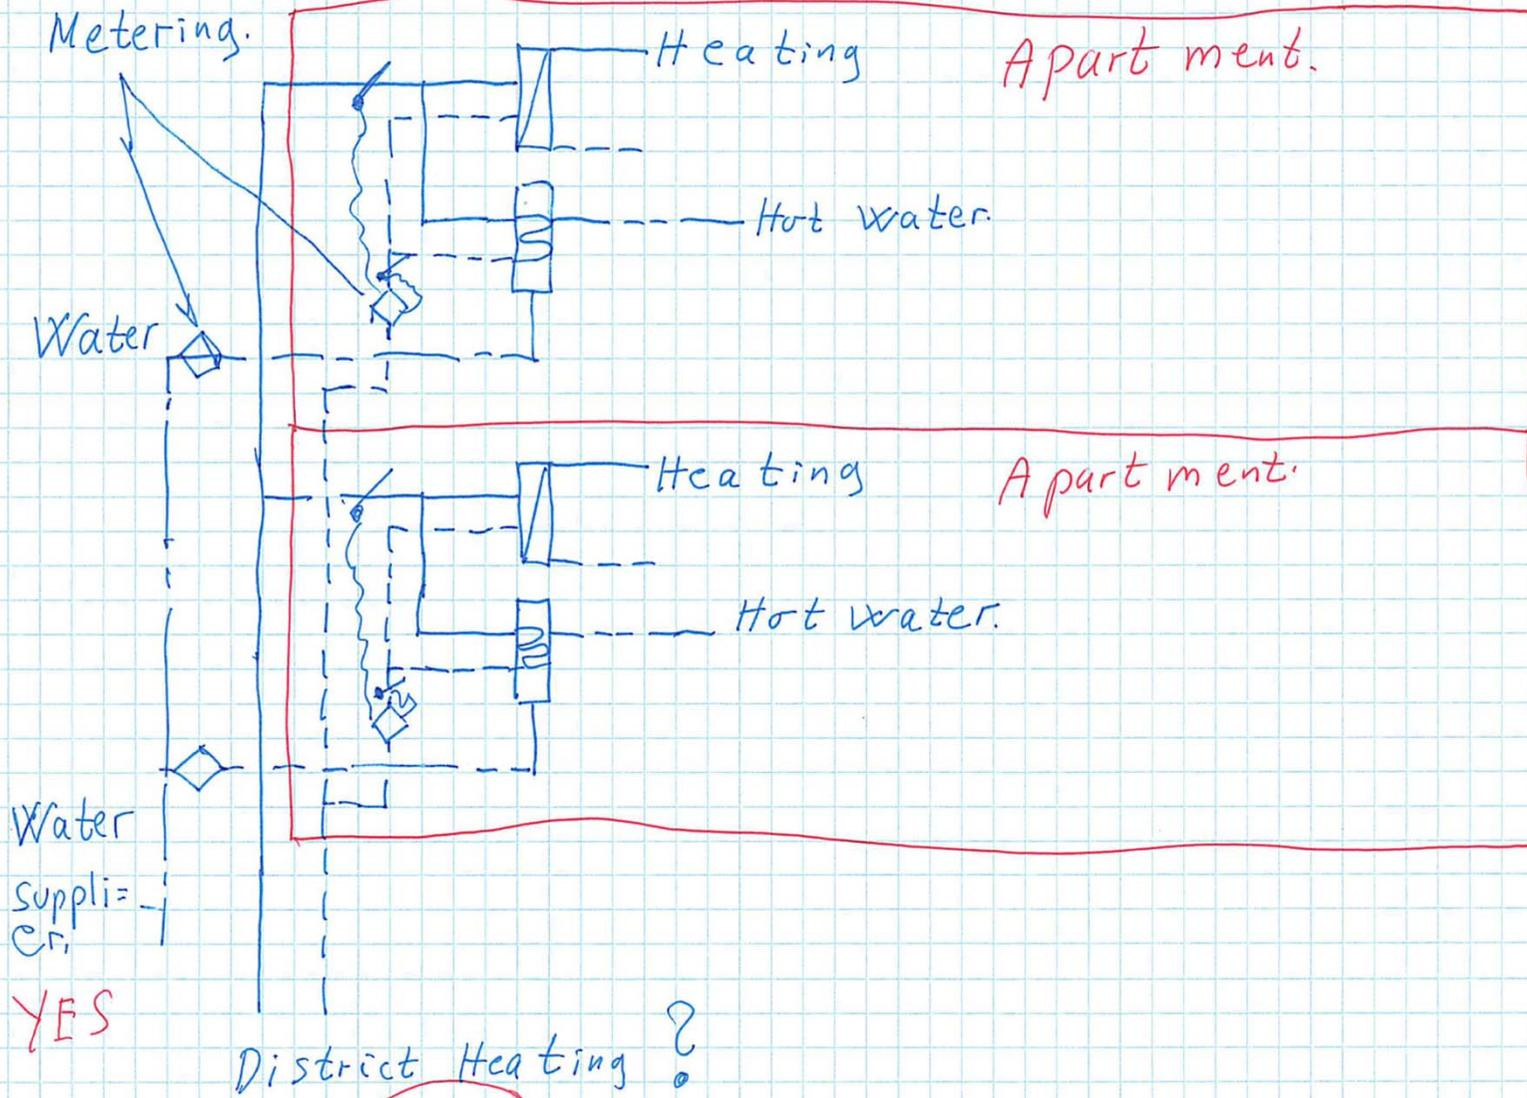 Metering.
Heating
Apart ment.
Hot water.
Water
Heating
Apart ment.
Hot water.
Water
suppli=
er,
YES
District Heating ?